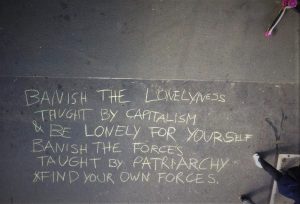 BANISH THE LONELYNESS
TAUGHT BY CAPITALISM
& BE LONELY FOR YOURSELF
BANISH THE FORCES
TAUGHT BY PATRIARCHY
& FIND YOUR OWN FORCES.